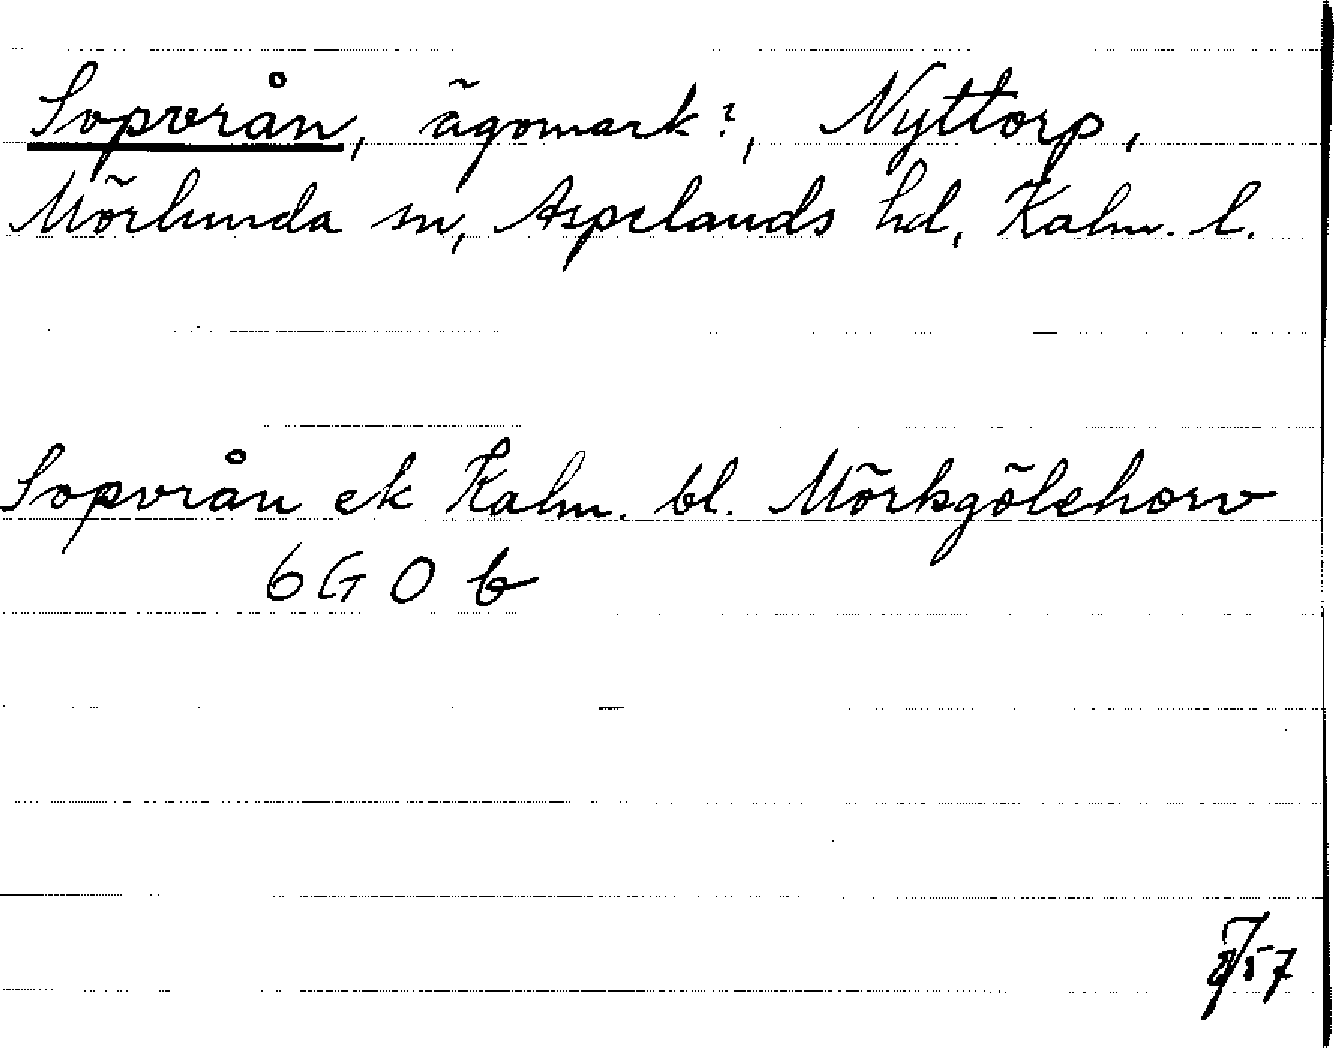 Sopvrån, ägomark?, Nyttorp,
Mörlunda sn, Aspelands hd, Kalm. l.
Sopvrån ek Kalm. bl. Mörkgölehorv
6G 0 b